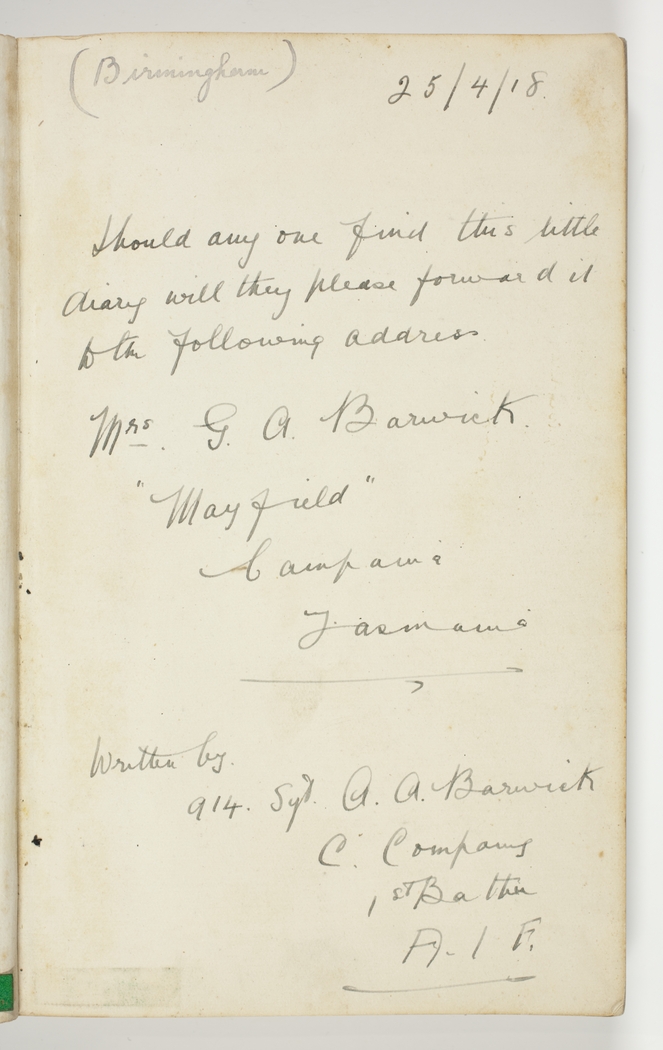 (Birmingham)
25/4/18.
Should any one find this little
diary will they please forward it
to the following address
Mrs. G. A. Barwick.
"Mayfield"
Campania
Tasmania
Written by.
914. Sgt. A. A. Barwick
C. Company
1st Battn
A. I F.